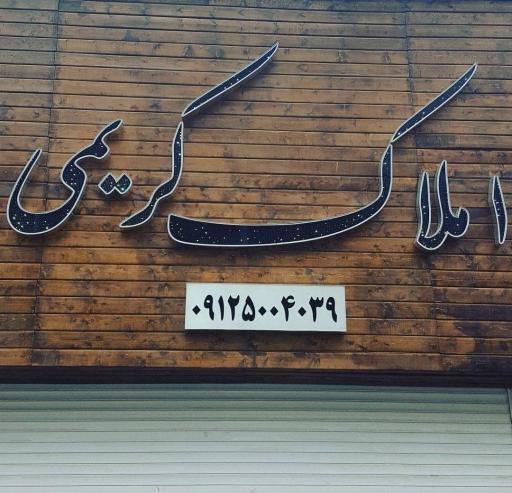 املاک کریمی
۰۹۱۲۵۰۰۴۰۳۹